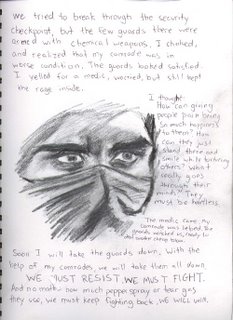 We tried to break through the security
checkpoint, but the few guards there were
armed with chemical weapons. I choked,
and realized that my comrade was in
worse condition. The guards looked satisfied.
I yelled for a medic, worried, but still kept
the rage inside.
I thought:
How can giving
people pain bring
so much happiness
to them? How
can they just
stand there and
smile while torturing
others? What
really goes
through their
minds? They
must be heartless.
The medic came. My
comrade was
The guards
and
Soon I will take the guards down. With the
help of my comrades, we will take them all down.
WE MUST RESIST. WE MUST FIGHT.
And no matter how much pepper spray or tear gas
they use, we must keep fighting back. WE WILL WIN.